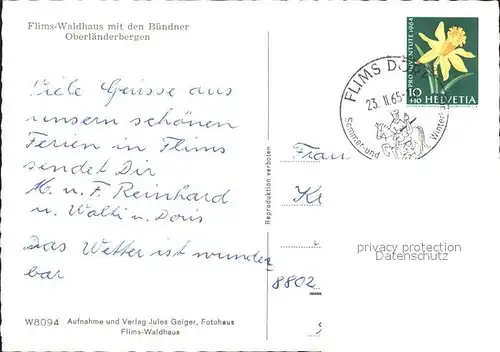 Flims-Waldhaus mit den Bündner
Oberländerbergen
PRO JUVENTUTE 1964
10
+10 HELVETIA
FLIMS DORF
23. II. 65
Sommer- und Winter
Viele Grüsse aus
unsern schönen
Ferien in Flims
sendet Dir
M. u. F. Reinhard
u. Walti u. Doris
Das Wetter ist wunder
bar
Reproduktion verboten
Frau
8802
privacy protection
Datenschutz
W8094 Aufnahme und Verlag Jules Geiger, Fotohaus
Flims-Waldhaus